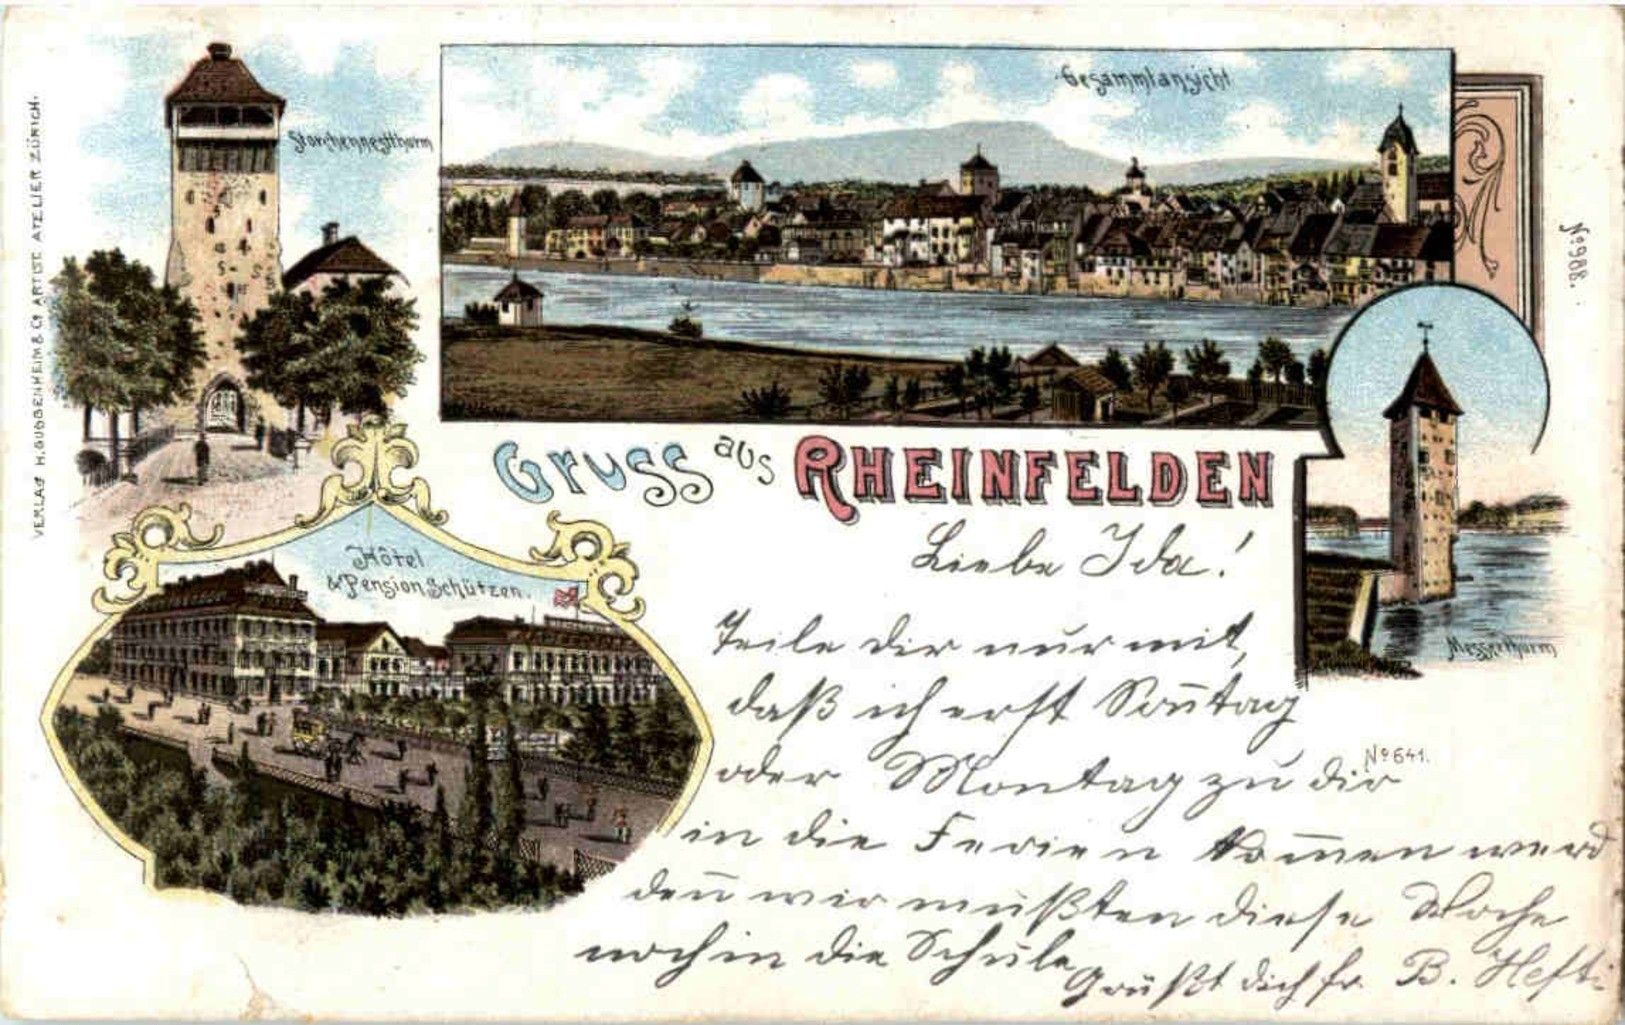 Storchennestthurm
Gesammtansicht
VERLAG H. GUGGENHEIM & Co ARTIST. ATELIER ZÜRICH.
No 988.
Gruss aus RHEINFELDEN
Hôtel
& Pension Schützen.
Messerthurm
Liebe Ida!
Teile dir nur mit,
daß ich erst Som̅tag
oder Montag zu dir
No 641.
in die Ferien kom̅en werd
den̅ wir mußten diese Woche
noch in die Schule
Grüßt dich fr. B. Hefti